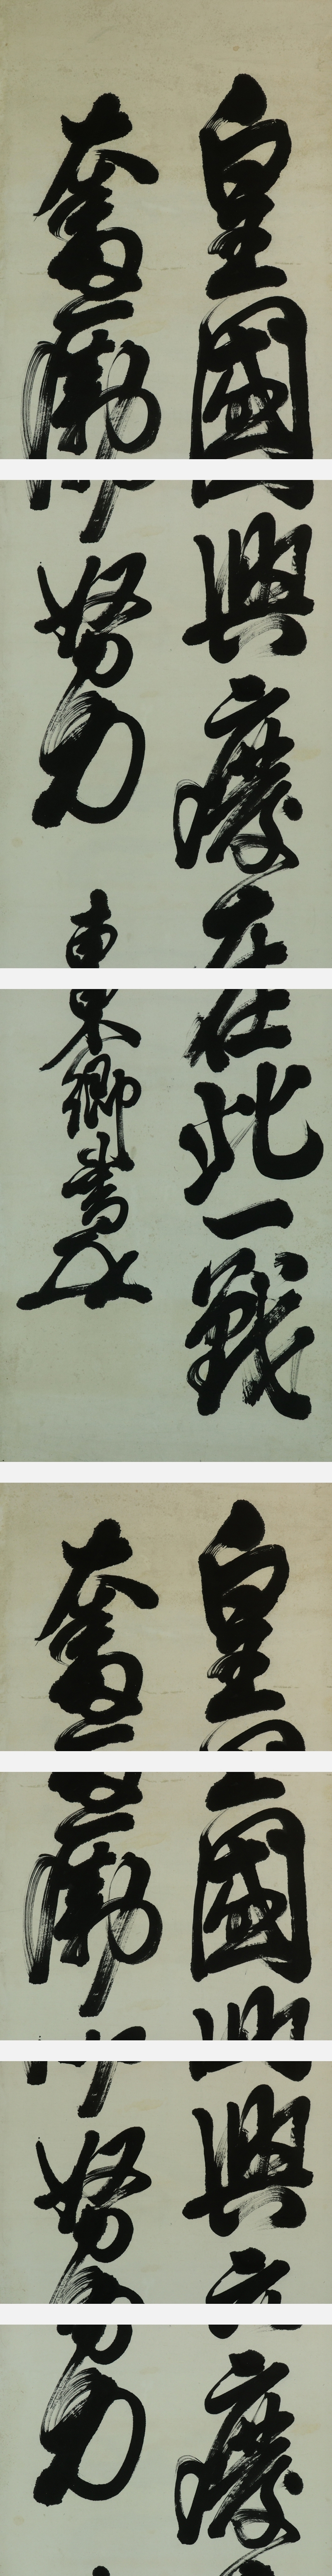 皇國興廢在此一戰
奮勵努力
東郷書